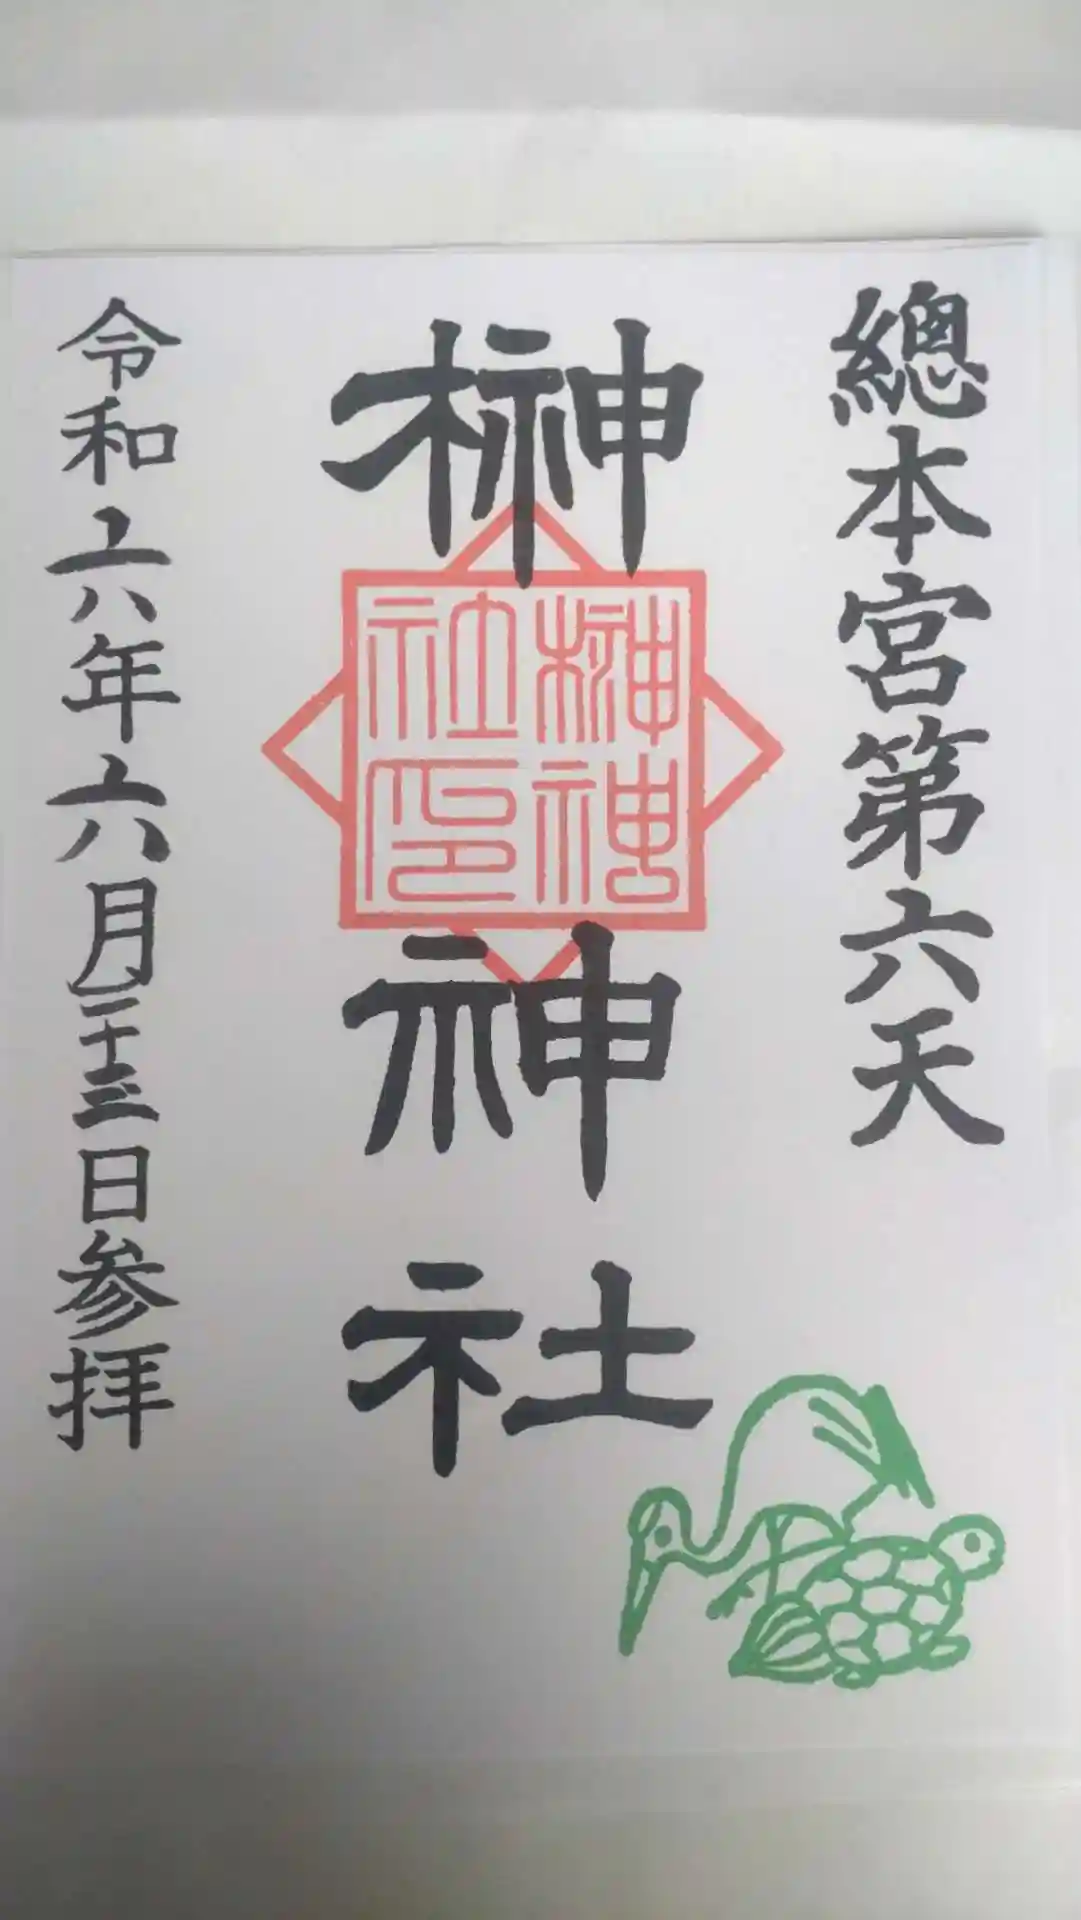 總本宮第六天
榊神社
榊神
社印
令和六年六月二十三日参拝